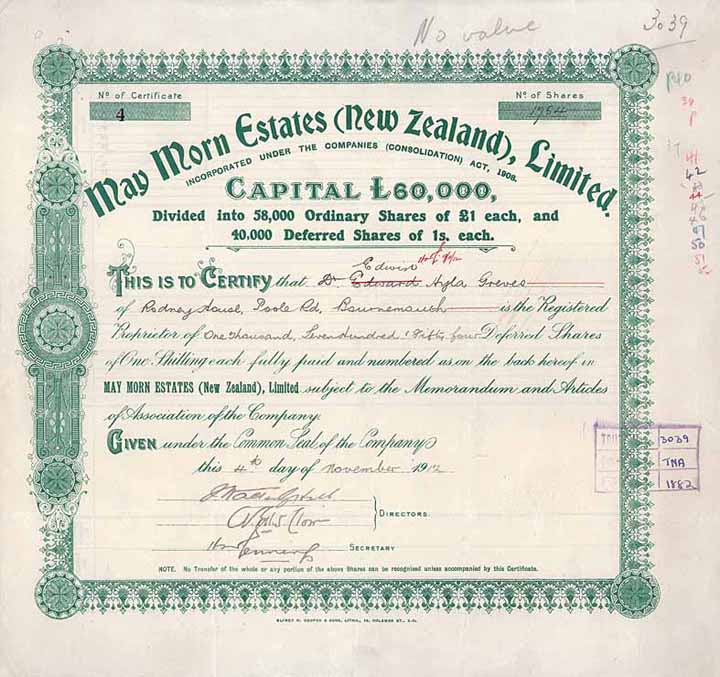 No value
3039
No of Certificate
4
No of Shares
1754
May Morn Estates (New Zealand), Limited.
INCORPORATED UNDER THE COMPANIES (CONSOLIDATION) ACT, 1908.
CAPITAL £60,000,
Divided into 58,000 Ordinary Shares of £1 each, and
40,000 Deferred Shares of 1s. each.
Edwin
THIS IS TO CERTIFY that Dr Edward Hyla Greves
of Rodney House, Poole Rd, Bournemouth is the Registered
Proprietor of One thousand, Seven Hundred & Fifty four Deferred Shares
of One Shilling each fully paid and numbered as on the back hereof in
MAY MORN ESTATES (New Zealand), Limited subject to the Memorandum and Articles
of Association of the Company.
GIVEN under the Common Seal of the Company
this 4th day of November 1912
DIRECTORS.
SECRETARY
NOTE. No Transfer of the whole or any portion of the above Shares can be recognised unless accompanied by this Certificate.
ALFRED H. COOPER & SONS, LITHO.,
41
42
50
51
3039
TNA
1882